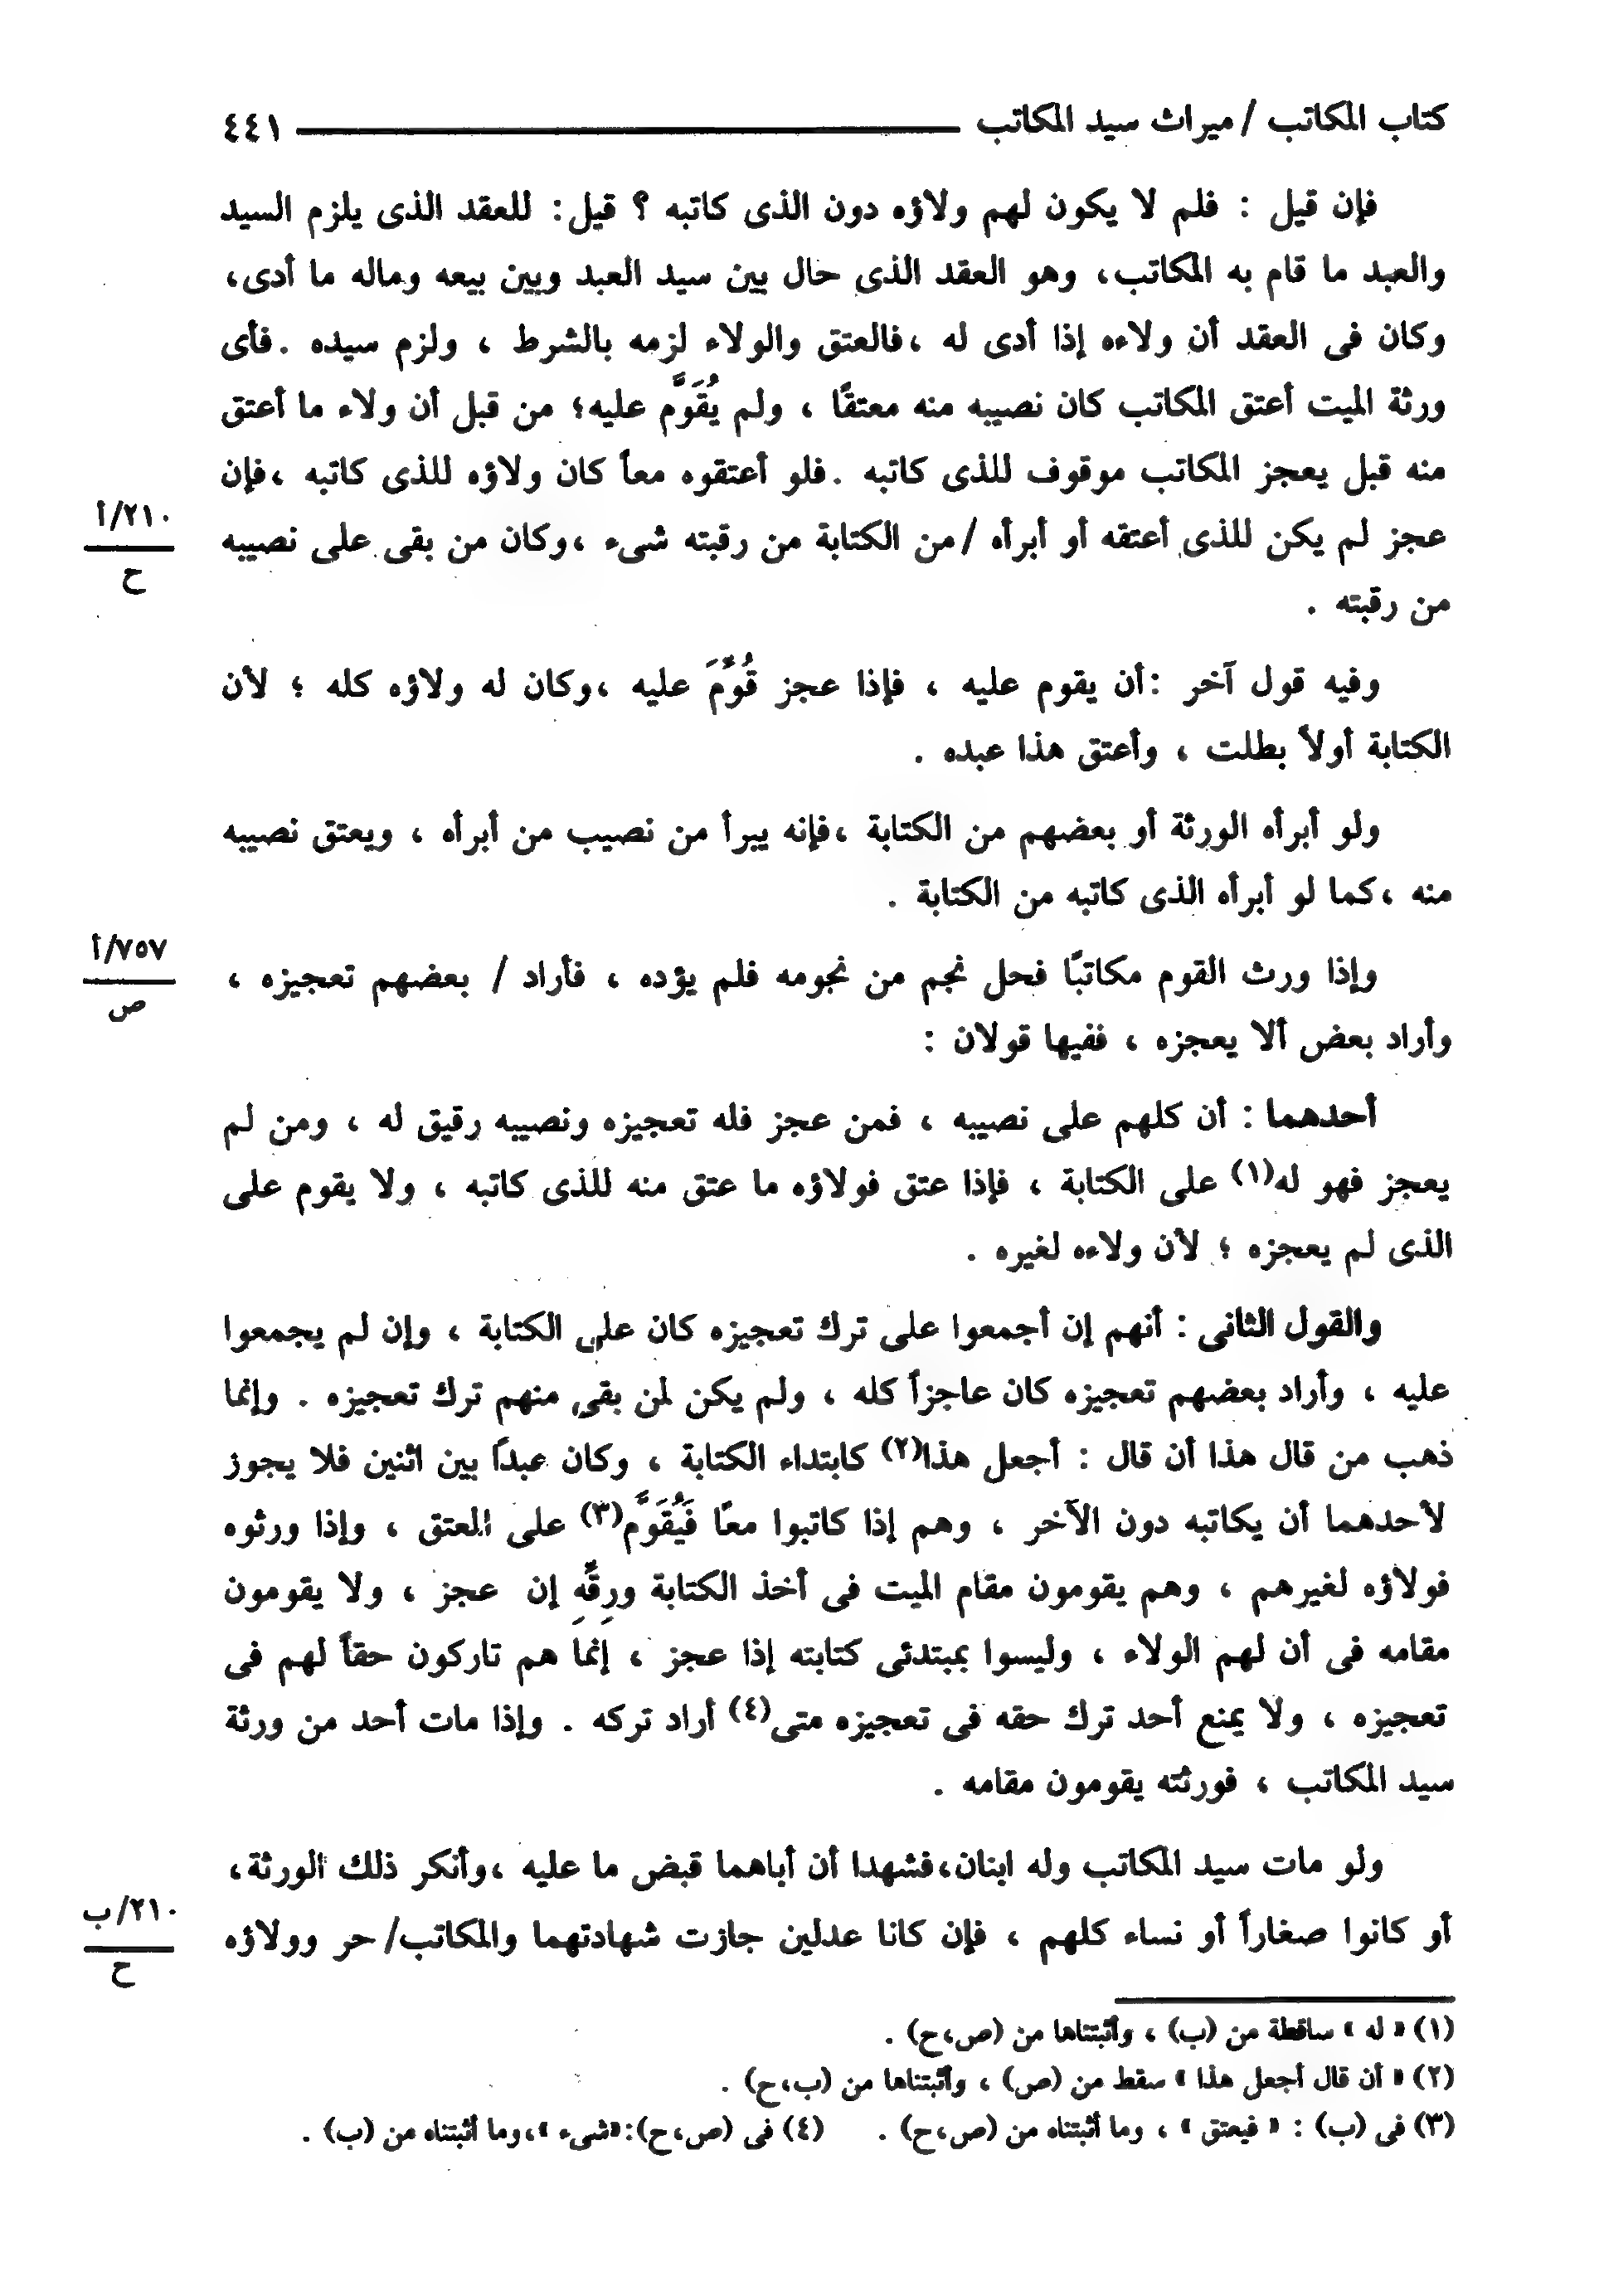 كتاب المكاتب / ميراث سيد المكاتب ٤٤١
فإن قيل : فلم لا يكون لهم ولاؤه دون الذى كاتبه ؟ قيل: للعقد الذى يلزم السيد
والعبد ما قام به المكاتب، وهو العقد الذى حال بين سيد العبد وبين بيعه وماله ما أدى،
وكان فى العقد أن ولاءه إذا أدى له ،فالعتق والولاء لزمه بالشرط ، ولزم سيده .فأى
ورثة الميت أعتق المكاتب كان نصيبه منه معتقًا ، ولم يُقَوَّم عليه؛ من قبل أن ولاء ما أعتق
منه قبل يعجز المكاتب موقوف للذى كاتبه .فلو أعتقوه معاً كان ولاؤه للذى كاتبه ،فإن
عجز لم يكن للذى أعتقه أو أبرأه /من الكتابة من رقبته شىء ،وكان من بقى على نصيبه
٢١٠/أ
ح
من رقبته .
وفيه قول آخر :أن يقوم عليه ، فإذا عجز قُوِّمَ عليه ،وكان له ولاؤه كله ؛ لأن
الكتابة أولاً بطلت ، وأعتق هذا عبده .
ولو أبرأه الورثة أو بعضهم من الكتابة ،فإنه يبرأ من نصيب من أبرأه ، ويعتق نصيبه
منه ،كما لو أبرأه الذى كاتبه من الكتابة .
وإذا ورث القوم مكاتبًا فحل نجم من نجومه فلم يؤده ، فأراد / بعضهم تعجيزه ،
٧٥٧/أ
ص
وأراد بعض ألا يعجزه ، ففيها قولان :
أحدهما : أن كلهم على نصيبه ، فمن عجز فله تعجيزه ونصيبه رقيق له ، ومن لم
يعجز فهو له(١) على الكتابة ، فإذا عتق فولاؤه ما عتق منه للذى كاتبه ، ولا يقوم على
الذى لم يعجزه ؛ لأن ولاءه لغيره .
والقول الثانى : أنهم إن أجمعوا على ترك تعجيزه كان على الكتابة ، وإن لم يجمعوا
عليه ، وأراد بعضهم تعجيزه كان عاجزاً كله ، ولم يكن لمن بقى منهم ترك تعجيزه . وإنما
ذهب من قال هذا أن قال : أجعل هذا(٢) كابتداء الكتابة ، وكان عبداً بين اثنين فلا يجوز
لأحدهما أن يكاتبه دون الآخر ، وهم إذا كاتبوا معًا فَيُقَوَّم(٣) على المعتق ، وإذا ورثوه
فولاؤه لغيرهم ، وهم يقومون مقام الميت فى أخذ الكتابة ورِقِّهِ إن عجز ، ولا يقومون
مقامه فى أن لهم الولاء ، وليسوا بمبتدئى كتابته إذا عجز ، إنما هم تاركون حقاً لهم فى
تعجيزه ، ولا يمنع أحد ترك حقه فى تعجيزه متى(٤) أراد تركه . وإذا مات أحد من ورثة
سيد المكاتب ، فورثته يقومون مقامه .
ولو مات سيد المكاتب وله ابنان،فشهدا أن أباهما قبض ما عليه ،وأنكر ذلك الورثة،
أو كانوا صغاراً أو نساء كلهم ، فإن كانا عدلين جازت شهادتهما والمكاتب/ حر وولاؤه
٢١٠/ب
ح
(١) « له » ساقطة من (ب) ، وأثبتناها من (ص،ح) .
(٢) « أن قال أجعل هذا » سقط من (ص) ، وأثبتناها من (ب،ح) .
(٣) فى (ب) : « فيعتق » ، وما أثبتناه من (ص،ح) . (٤) فى (ص،ح):«شىء »،وما أثبتناه من (ب) .